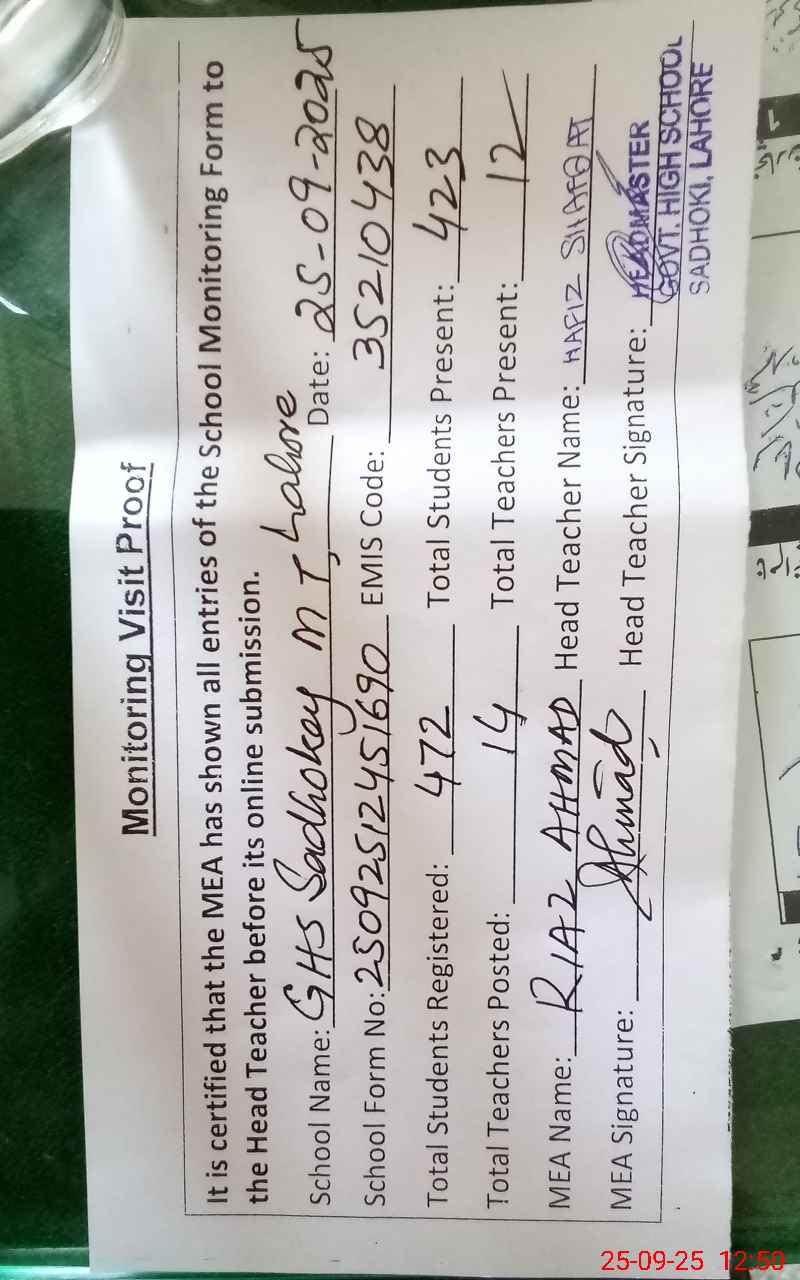 Monitoring Visit Proof
It is certified that the MEA has shown all entries of the School Monitoring Form to
the Head Teacher before its online submission.
School Name: GHS Sadhokey MT, Lahore Date: 25-09-2025
School Form No: 250925124551690 EMIS Code: 35210438
Total Students Registered: 472 Total Students Present: 423
Total Teachers Posted: 14 Total Teachers Present: 12
MEA Name: RIAZ AHMAD Head Teacher Name: HAFIZ SHAFQAT
MEA Signature: Ahmad Head Teacher Signature:
HEADMASTER
GOVT. HIGH SCHOOL
SADHOKI, LAHORE
25-09-25 12:50